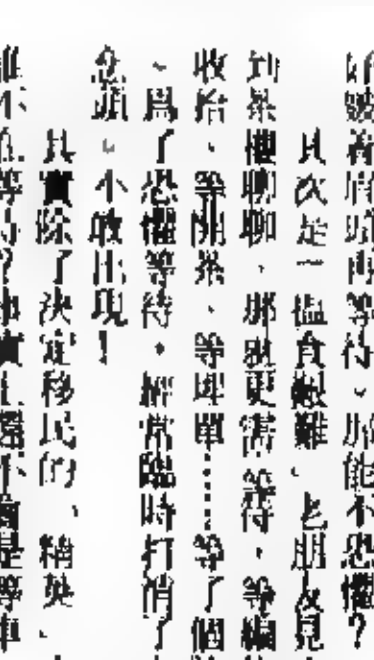 皺着眉頭再等待。那能不恐懼？
其次是一搵食艱難、老朋友見
到茶樓聊聊，那就更需等待，等編
收拾、等開茶、等埋單……等了個
、爲了恐懼等待，經常臨時打消了
念頭，不敢出現！
其實除了決定移民的、精英、
不等？實上還不是等車